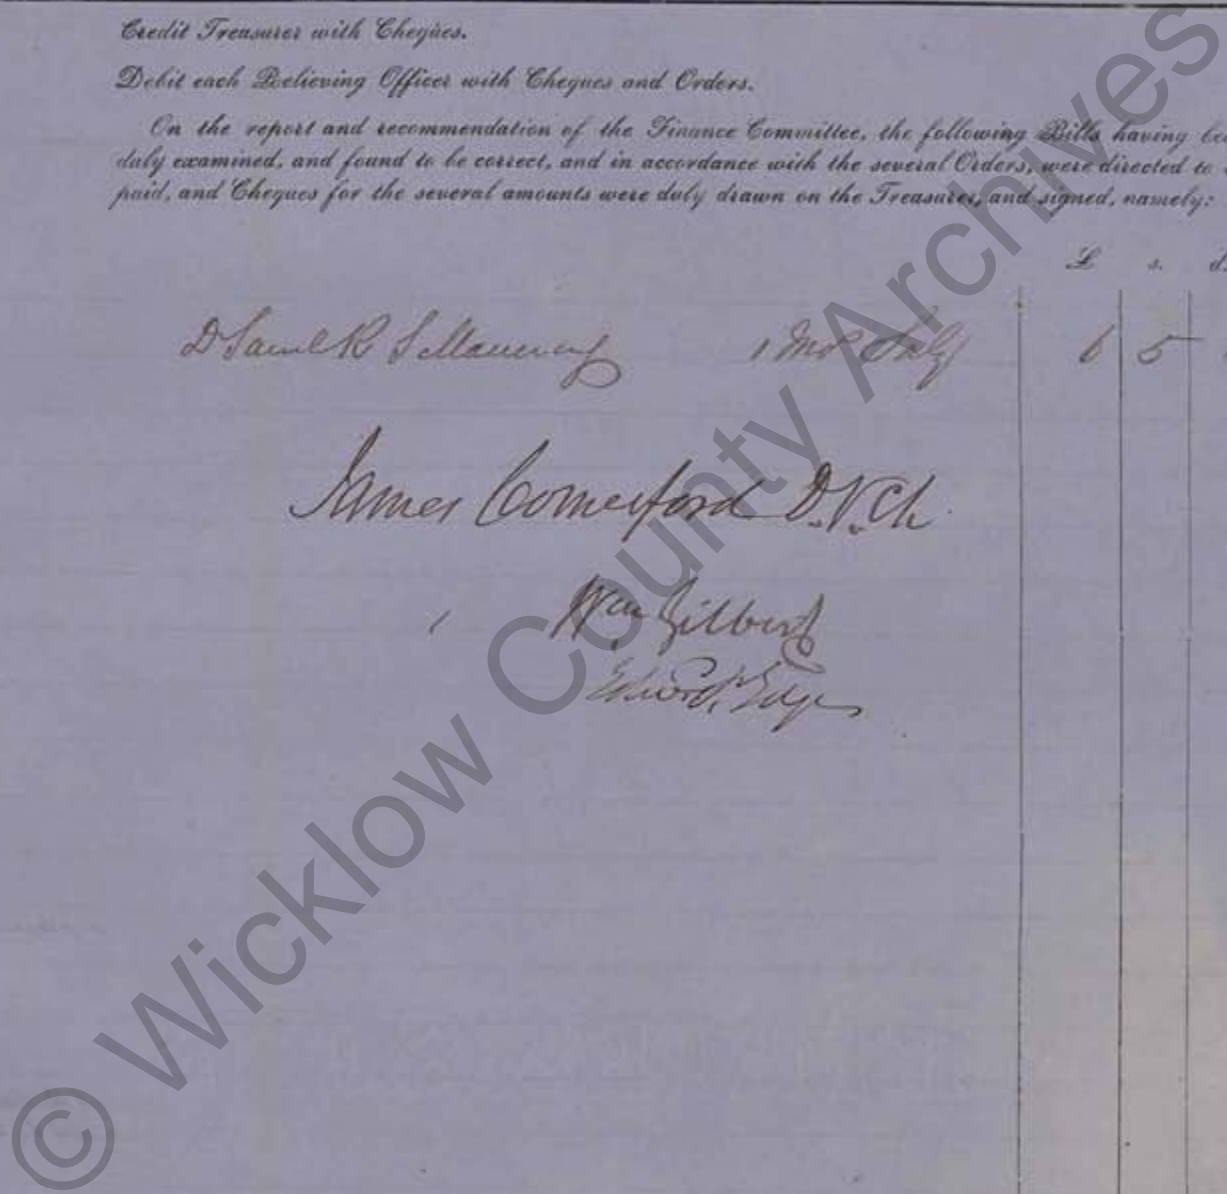 Credit Treasurer with Cheques.
Debit each Relieving Officer with Cheques and Orders.
On the report and recommendation of the Finance Committee, the following Bills having be
duly examined, and found to be correct, and in accordance with the several Orders, were directed to
paid, and Cheques for the several amounts were duly drawn on the Treasurer, and signed, namely:
£ s. d.
1 Mos Saly 6 5
James Comerford D.V.Ch.
Wm Gilbert
Edward
© Wicklow County Archives